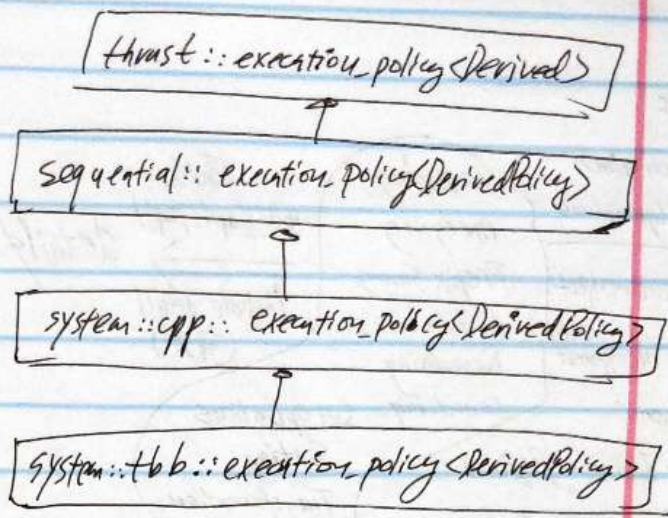 thrust::execution_policy<Derived>
sequential::execution_policy<DerivedPolicy>
system::cpp::execution_policy<DerivedPolicy>
system::tbb::execution_policy<DerivedPolicy>